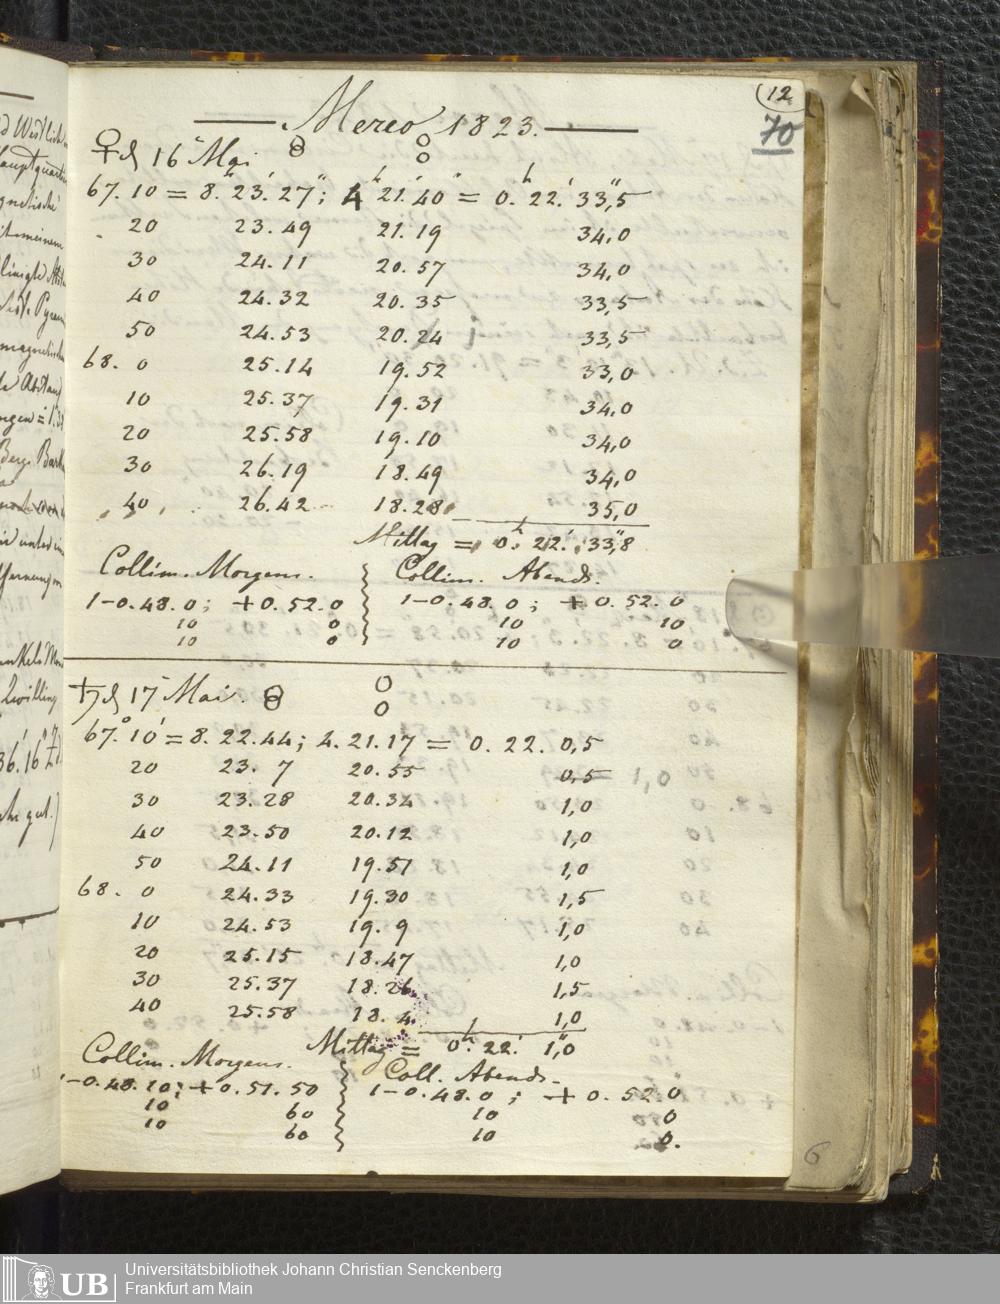 12
70
Mereo 1823.
♀ d 16 Mai
67.10 = 8.h 23.' 27"; 4h 21.' 40" = 0.h 22.' 33,"5
20 23.49 21.19 34,0
30 24.11 20.57 34,0
40 24.32 20.35 33,5
50 24.53 20.24 33,5
68. 0 25.14 19.52 33,0
10 25.37 19.31 34,0
20 25.58 19.10 34,0
30 26.19 18.49 34,0
40 26.42 18.28 35,0
Mittag = 0.h 22.' 33,"8
Collim. Morgens. Collim. Abends.
1-0.48.0; +0.52.0 1-0.48.0; +0.52.0
10 0 10 10
10 0 10 0
♄ d 17 Mai.
67.° 10' = 8.22.44; 4.21.17 = 0.22.0,5
20 23. 7 20.55 0,5 = 1,0
30 23.28 20.34 1,0
40 23.50 20.12 1,0
50 24.11 19.51 1,0
68. 0 24.33 19.30 1,5
10 24.53 19.9 1,0
20 25.15 18.47 1,0
30 25.37 18.26 1,5
40 25.58 18.4 1,0
Mittag = 0.h 22.' 1,"0
Collim. Morgens. Coll. Abends.
1-0.48.10; +0.51.50 1-0.48.0; +0.52.0
10 60 10 0
10 60 10 0.
6
UB
Universitätsbibliothek Johann Christian Senckenberg
Frankfurt am Main